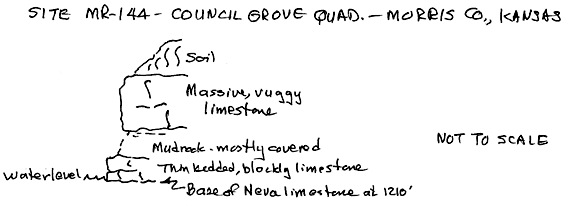 SITE MR-144 - COUNCIL GROVE QUAD. - MORRIS CO., KANSAS
Soil
Massive, vuggy
limestone
NOT TO SCALE
Mudrock - mostly covered
Thin bedded, blocky limestone
Waterlevel
Base of Neva limestone at 1210'